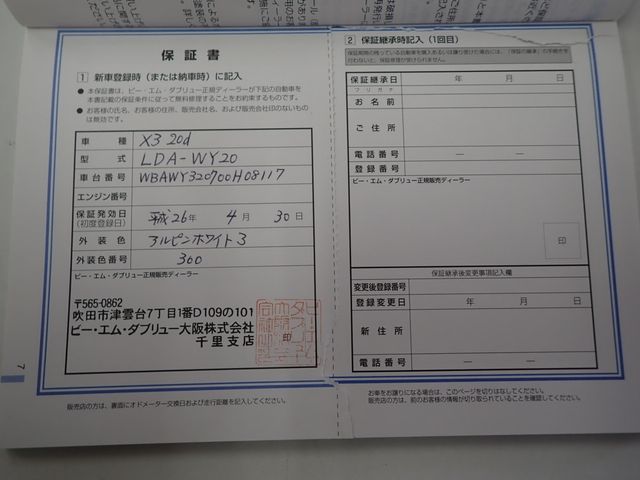 保証書
1 新車登録時(または納車時)に記入
● 本保証書は、ビー・エム・ダブリュー正規ディーラーが下記の自動車を
本書記載の保証条件に従って無料修理することをお約束するものです。
● お客様の氏名、お客様の住所、販売会社名、および販売会社印のないもの
は無効です。
車種 X3 20d
型式 LDA-WY20
車台番号 WBAWY320700H08117
エンジン番号
保証発効日 平成26年 4月 30日
(初度登録日)
外装色 アルピンホワイト3
外装色番号 300
ビー・エム・ダブリュー正規販売ディーラー
〒565-0862
吹田市津雲台7丁目1番D109の101
ビー・エム・ダブリュー大阪株式会社
千里支店
印
7
販売店の方は、裏面にオドメーター交換日および走行距離を記入してください。
2 保証継承時記入(1回目)
保証期間の残っている自動車を購入あるいは譲り受けた場合には、「保証の継承」の手続きを
行わないと、保証修理が受けられません。
保証継承日 年 月 日
フリガナ
お名前
ご住所
電話番号 ― ―
登録番号
ビー・エム・ダブリュー正規販売ディーラー
印
保証継承後変更事項記入欄
変更後登録番号
登録変更日 年 月 日
新住所
電話番号 ― ―
お車をお譲りになる場合は、このページを切りはなしてください。
販売店の方は、前のお客様の情報が切り取られていることを確認してください。